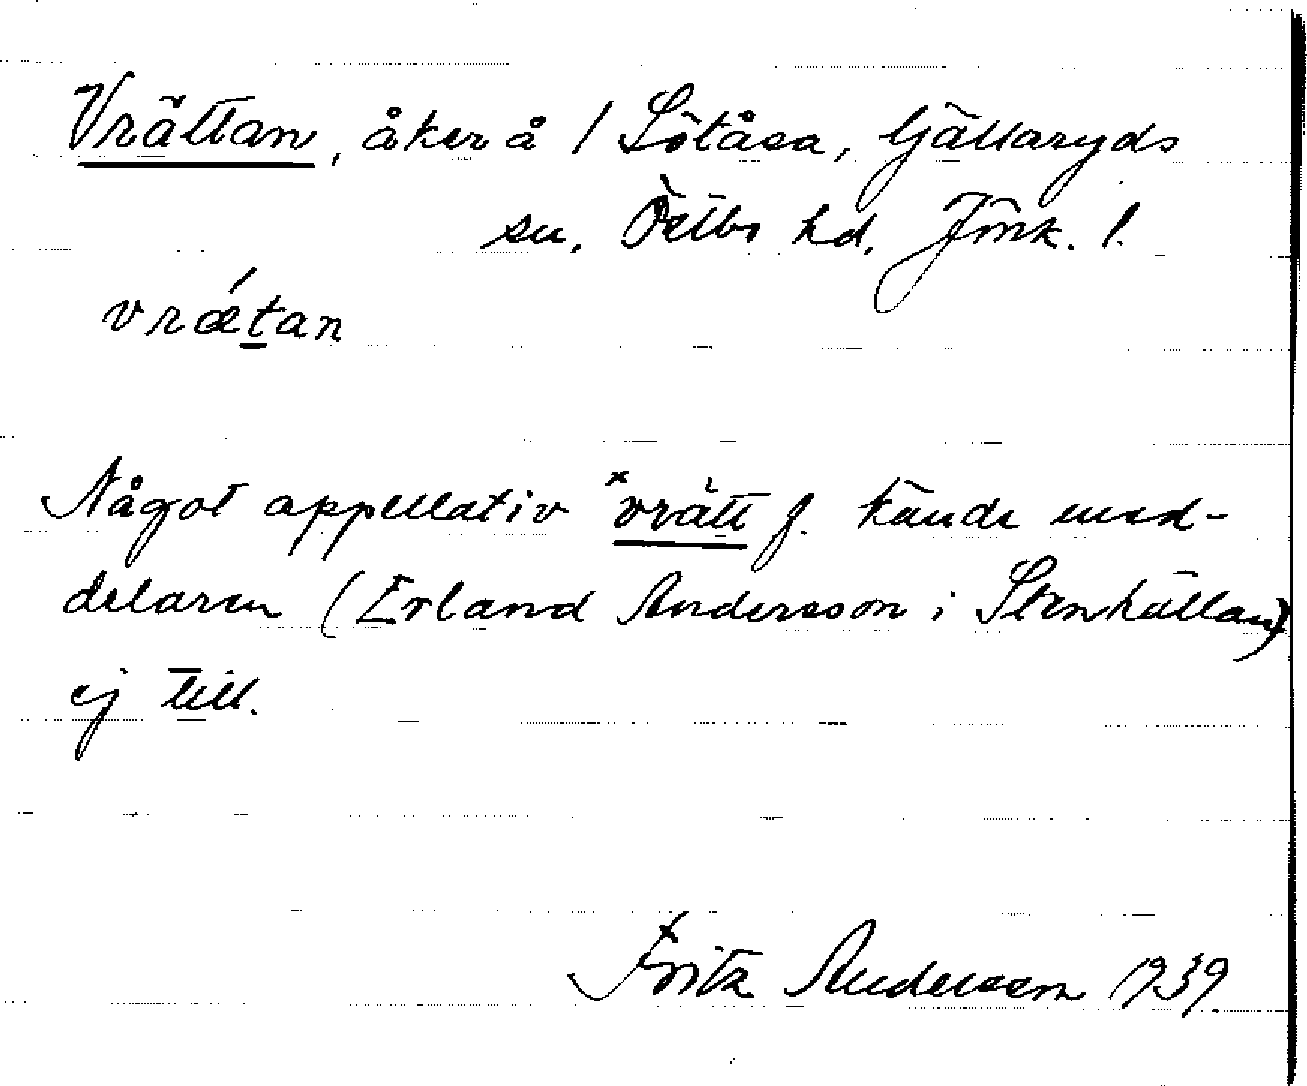 Vrättan, åker å 1 Sötåsa, Gällaryds
sn, Östbo hd, Jönk. l.
vrǽtan
Något appellativ *vrätt f. kände med-
delaren (Erland Andersson i Stenhällan)
ej till.
Fritz Andersson 1939